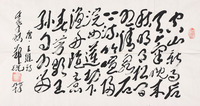 空山新雨后
天气晚来秋
明月松间照
清泉石上流
竹喧归浣女
莲动下渔舟
随意春芳歇
王孙自可留
唐王维诗